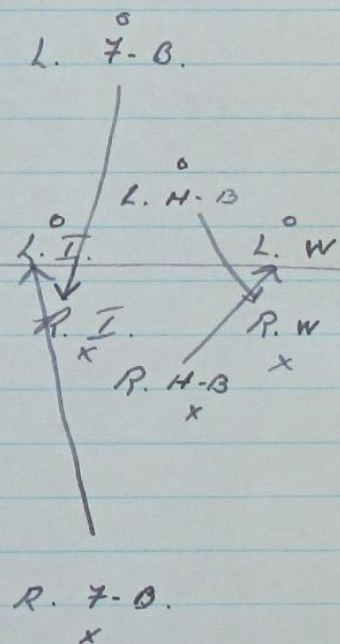 o
L. 7-B.
o
L. H-B
o o
L. I. L. W
R. I. R. W
x x
R. H-B
x
R. 7-B.
x